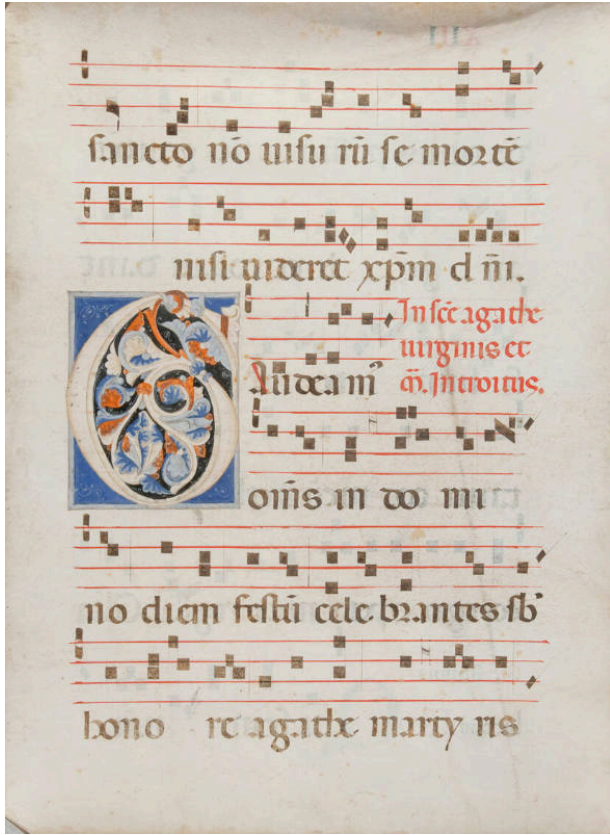 sancto nō uisu rū se mortē
nisi uideret xp̄m d n̄i.
In scē agathe
uirginis et
m̄. Introitus.
Gaudeam᷒
om̄s in do mi
no diem festū cele brantes sb᷒
hono re agathe marty ris